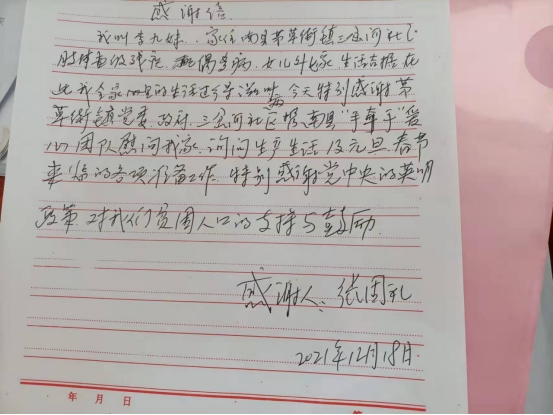 感谢信
我叫李九妹. 家住南县茅草街镇三岔河社区
肢体叁级残疾. 配偶患病. 女儿外嫁. 生活拮据. 在
此我全家四口的生活过得滋味 今天特别感谢茅
草街镇党委. 政府. 三岔河社区. 恨. 南县"手牵手"爱
心团队慰问我家. 询问生产生活及元旦. 春节
来临的各项准备工作. 特别感谢党中央的英明
政策. 对我们贫困人口的支持与鼓励.
感谢人: 张周礼
2021年12月18日.
年 月 日